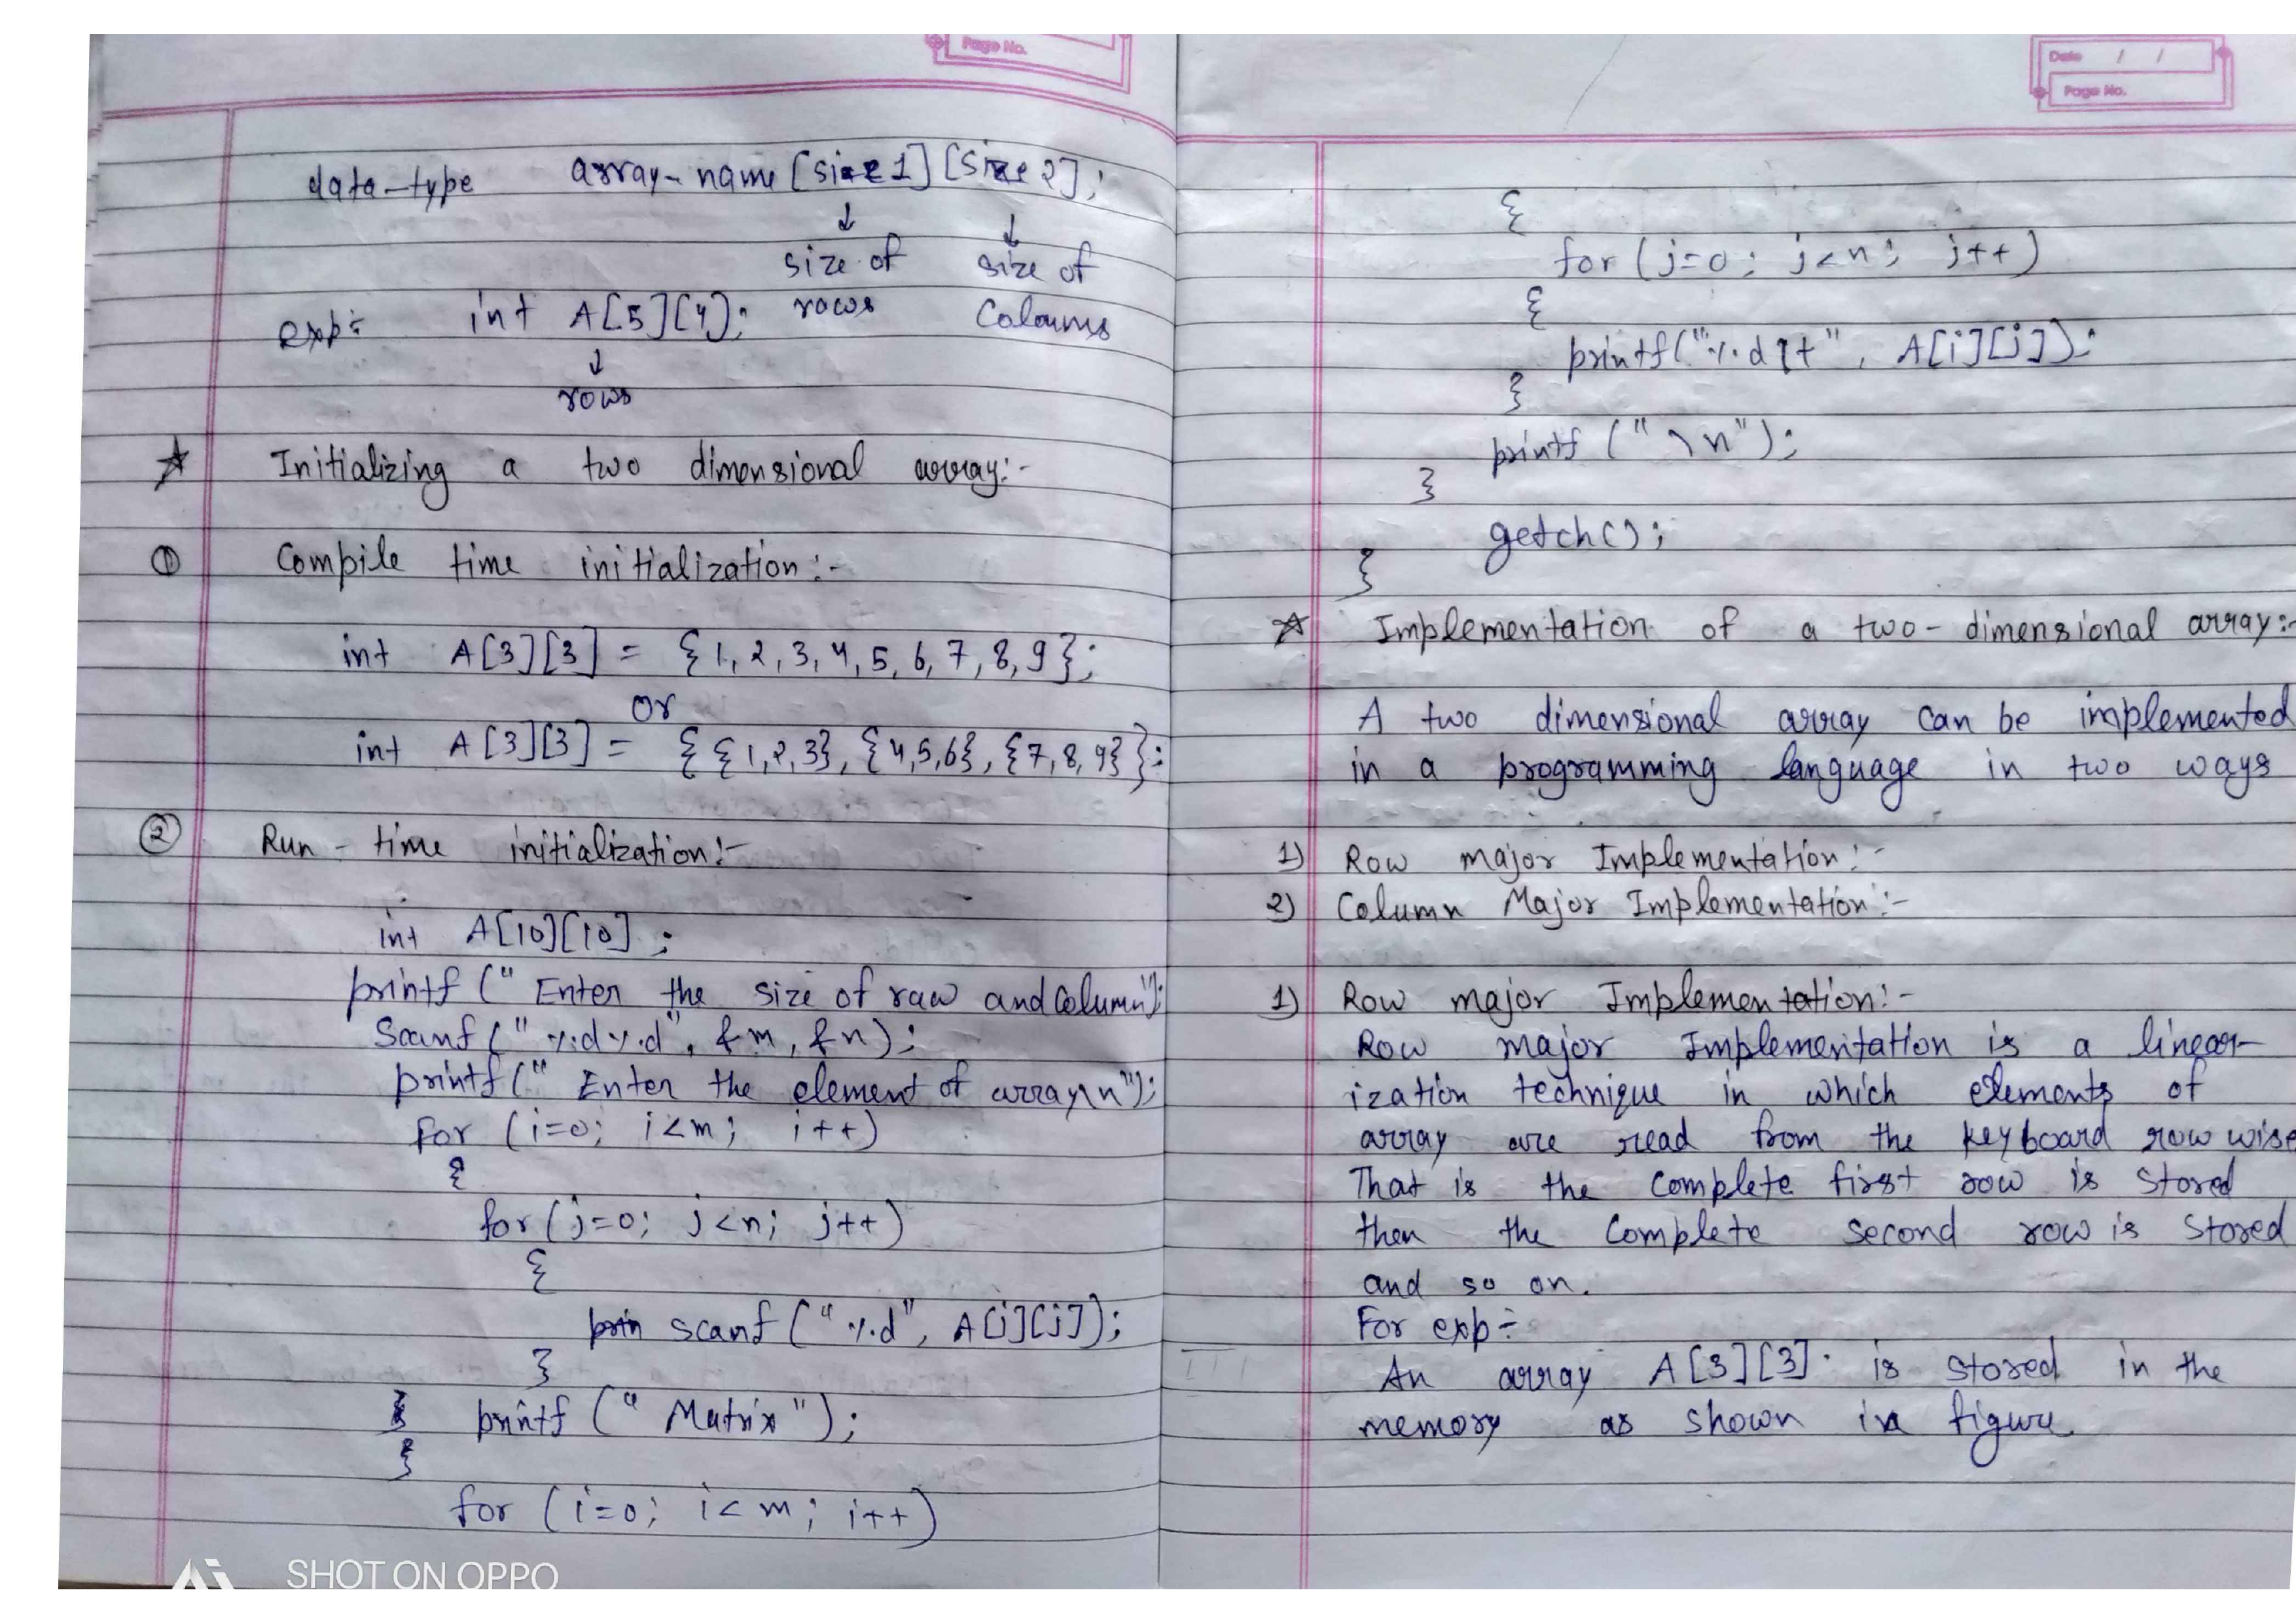 Page No.
data-type array-name [size1] [size2];
↓ ↓
size of size of
rows Coloums
exp:- int A[5][4];
↓
rows
☆ Initializing a two dimensional array:-
① Compile time initialization:-
int A[3][3] = {1, 2, 3, 4, 5, 6, 7, 8, 9};
or
int A[3][3] = { {1,2,3}, {4,5,6}, {7,8,9}};
② Run-time initialization:-
int A[10][10];
printf (" Enter the size of raw and Column");
Scanf (" %d%d", &m, &n);
printf (" Enter the element of array\n");
for (i=0; i<m; i++)
{
for (j=0; j<n; j++)
{
scanf ("%d", A[i][j]);
}
printf (" Matrix ");
}
for (i=0; i<m; i++)
SHOT ON OPPO
Date / /
Page No.
{
for (j=0; j<n; j++)
{
printf("%d\t", A[i][j]);
}
printf ("\n");
}
getch();
}
☆ Implementation of a two-dimensional array:-
A two dimensional array can be implemented
in a programming language in two ways
1) Row major Implementation:-
2) Column Major Implementation:-
1) Row major Implementation:-
Row major Implementation is a linear-
ization technique in which elements of
array are read from the keyboard row wise
That is the complete first row is stored
then the complete second row is stored
and so on.
For exp:-
An array A[3][3] is stored in the
memory as shown in figure